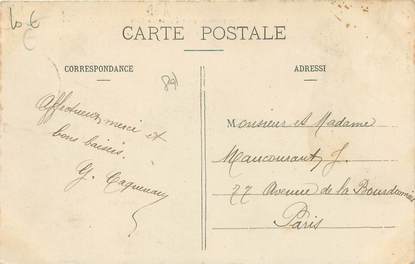 10 €
CARTE POSTALE
CORRESPONDANCE
ADRESSI
Affectueux merci et
bons baisers.
G.
Monsieur et Madame
Maucourant J.
77 Avenue de la Bourdonnais
Paris